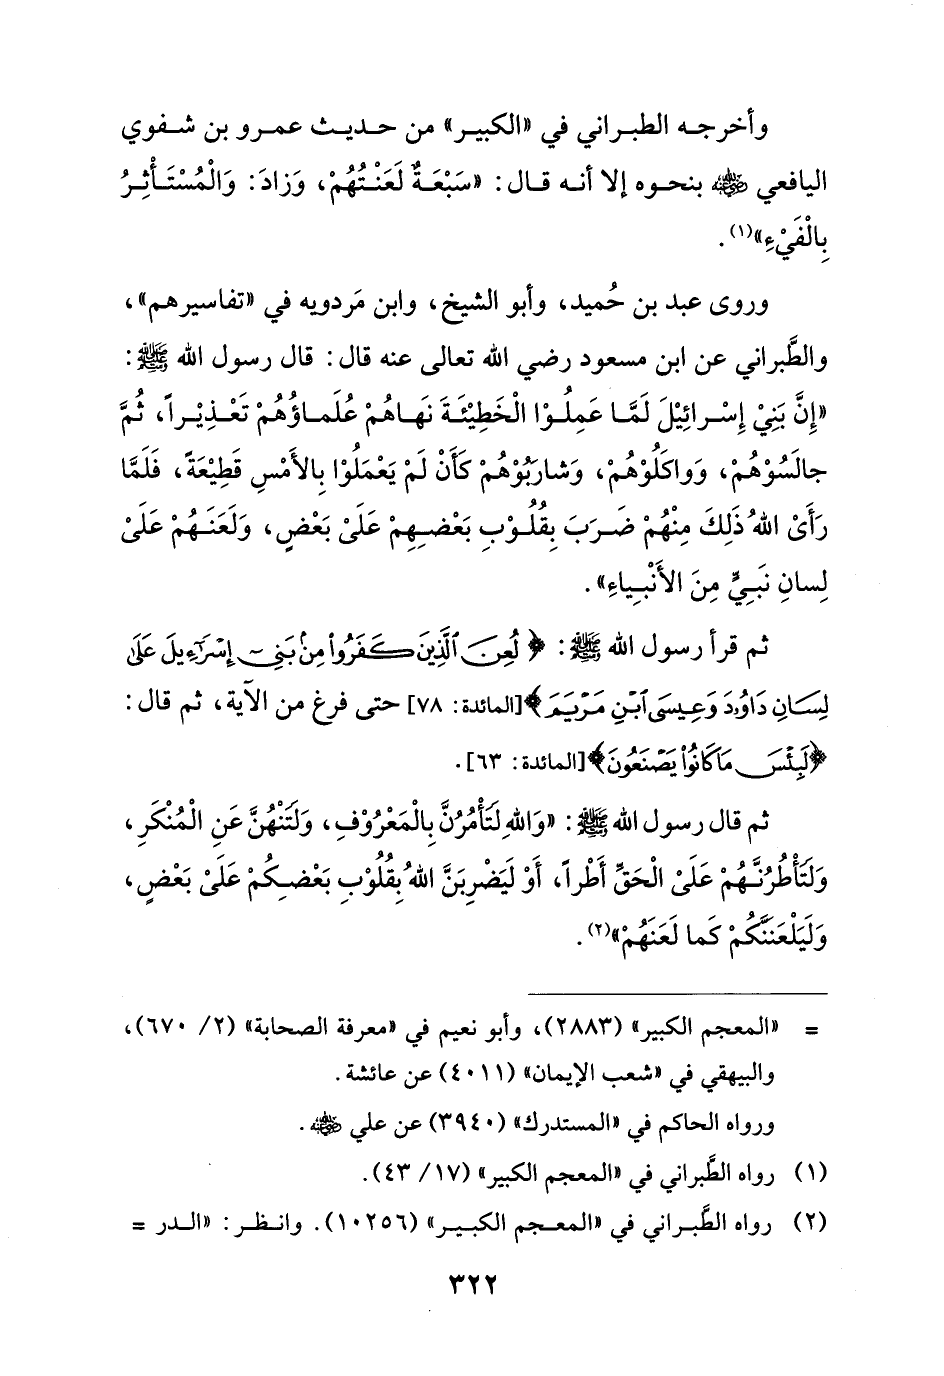 وأخرجه الطبراني في «الكبير» من حديث عمرو بن شفوي
اليافعي ﵁ بنحوه إلا أنه قال: «سَبْعَةٌ لَعَنْتُهُمْ، وَزادَ: وَالْمُسْتَأْثِرُ
بِالْفَيْءِ»(١).
وروى عبد بن حُميد، وأبو الشيخ، وابن مَردويه في «تفاسيرهم»،
والطَّبراني عن ابن مسعود رضي الله تعالى عنه قال: قال رسول الله ﷺ:
«إِنَّ بَنِيْ إِسْرائِيْلَ لَمَّا عَمِلُوْا الْخَطِيْئَةَ نَهاهُمْ عُلَماؤُهُمْ تَعْذِيْراً، ثُمَّ
جالَسُوْهُمْ، وَواكَلُوْهُمْ، وَشارَبُوْهُمْ كَأَنْ لَمْ يَعْمَلُوْا بِالأَمْسِ قَطِيْعَةً، فَلَمَّا
رَأَىْ اللهُ ذَلِكَ مِنْهُمْ ضَرَبَ بِقُلُوْبِ بَعْضِهِمْ عَلَىْ بَعْضٍ، وَلَعَنَهُمْ عَلَىْ
لِسانِ نَبِيٍّ مِنَ الأَنْبِياءِ».
ثم قرأ رسول الله ﷺ: ﴿لُعِنَ الَّذِينَ كَفَرُوا مِنْ بَنِي إِسْرَائِيلَ عَلَى
لِسَانِ دَاوُودَ وَعِيسَى ابْنِ مَرْيَمَ﴾[المائدة: ٧٨] حتى فرغ من الآية، ثم قال:
﴿لَبِئْسَ مَا كَانُوا يَصْنَعُونَ﴾[المائدة: ٦٣].
ثم قال رسول الله ﷺ: «وَاللهِ لَتَأْمُرُنَّ بِالْمَعْرُوْفِ، وَلَتَنْهُنَّ عَنِ الْمُنْكَرِ،
وَلَتَأْطُرُنَّهُمْ عَلَىْ الْحَقِّ أَطْراً، أَوْ لَيَضْرِبَنَّ اللهُ بِقُلُوْبِ بَعْضِكُمْ عَلَىْ بَعْضٍ،
وَلَيَلْعَنَنَّكُمْ كَما لَعَنَهُمْ»(٢).
= «المعجم الكبير» (٢٨٨٣)، وأبو نعيم في «معرفة الصحابة» (٢/ ٦٧٠)،
والبيهقي في «شعب الإيمان» (٤٠١١) عن عائشة.
ورواه الحاكم في «المستدرك» (٣٩٤٠) عن علي ﵁.
(١) رواه الطَّبراني في «المعجم الكبير» (١٧/ ٤٣).
(٢) رواه الطَّبراني في «المعجم الكبير» (١٠٢٥٦). وانظر: «الدر =
٣٢٢